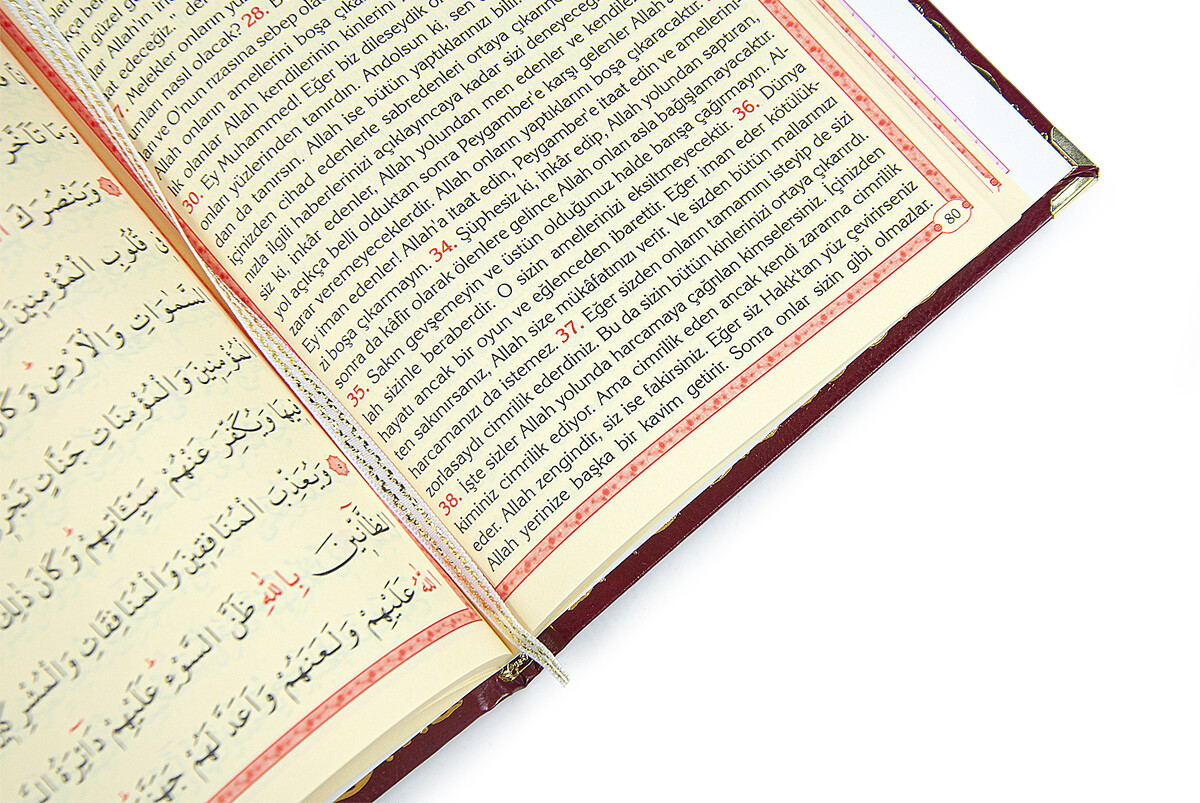 Allah'ın
edeceğiz.”
Melekler onların
nasıl olacak? 28.
ve O'nun rızasına sebep
Allah onların amellerini boşa
lik olanlar Allah kendilerinin kinlerini
30. Ey Muhammed! Eğer biz dileseydik
onları yüzlerinden tanırdın. Andolsun ki, sen
dan da tanırsın. Allah ise bütün yaptıklarınızı
içinizden cihad edenlerle sabredenleri ortaya
nızla ilgili haberlerinizi açıklayıncaya kadar sizi
siz ki, inkâr edenler, Allah yolundan men edenler ve
yol açıkça belli olduktan sonra Peygamber'e karşı gelenler
zarar veremeyeceklerdir. Allah onların yaptıklarını boşa çıkaracaktır.
Ey iman edenler! Allah'a itaat edin, Peygamber'e itaat edin ve amellerini-
zi boşa çıkarmayın. 34. Şüphesiz ki, inkâr edip, Allah yolundan saptıran,
sonra da kâfir olarak ölenlere gelince Allah onları asla bağışlamayacaktır.
35. Sakın gevşemeyin ve üstün olduğunuz halde barışa çağırmayın. Al-
lah sizinle beraberdir. O sizin amellerinizi eksiltmeyecektir. 36. Dünya
hayatı ancak bir oyun ve eğlenceden ibarettir. Eğer iman eder kötülük-
ten sakınırsanız, Allah size mükâfatınızı verir. Ve sizden bütün mallarınızı
harcamanızı da istemez. 37. Eğer sizden onların tamamını isteyip de sizi
zorlasaydı cimrilik ederdiniz. Bu da sizin bütün kinlerinizi ortaya çıkarırdı.
38. İşte sizler Allah yolunda harcamaya çağrılan kimselersiniz. İçinizden
kiminiz cimrilik ediyor. Ama cimrilik eden ancak kendi zararına cimrilik
eder. Allah zengindir, siz ise fakirsiniz. Eğer siz Hakk'tan yüz çevirirseniz
Allah yerinize başka bir kavim getirir. Sonra onlar sizin gibi olmazlar.
80
وَيَنْصُرَكَ
قُلُوبِ الْمُؤْمِنِينَ
السَّمٰوَاتِ وَالْاَرْضِ وَكَانَ
الْمُؤْمِنِينَ وَالْمُؤْمِنَاتِ جَنَّاتٍ تَجْرِي
وَيُكَفِّرَ عَنْهُمْ سَيِّـَٔاتِهِمْ وَكَانَ ذٰلِكَ
وَيُعَذِّبَ الْمُنَافِقِينَ وَالْمُنَافِقَاتِ وَالْمُشْرِكِينَ
الظَّٓانِّينَ بِاللّٰهِ ظَنَّ السَّوْءِ عَلَيْهِمْ دَٓائِرَةُ
اللّٰهُ عَلَيْهِمْ وَلَعَنَهُمْ وَاَعَدَّ لَهُمْ جَهَنَّمَ